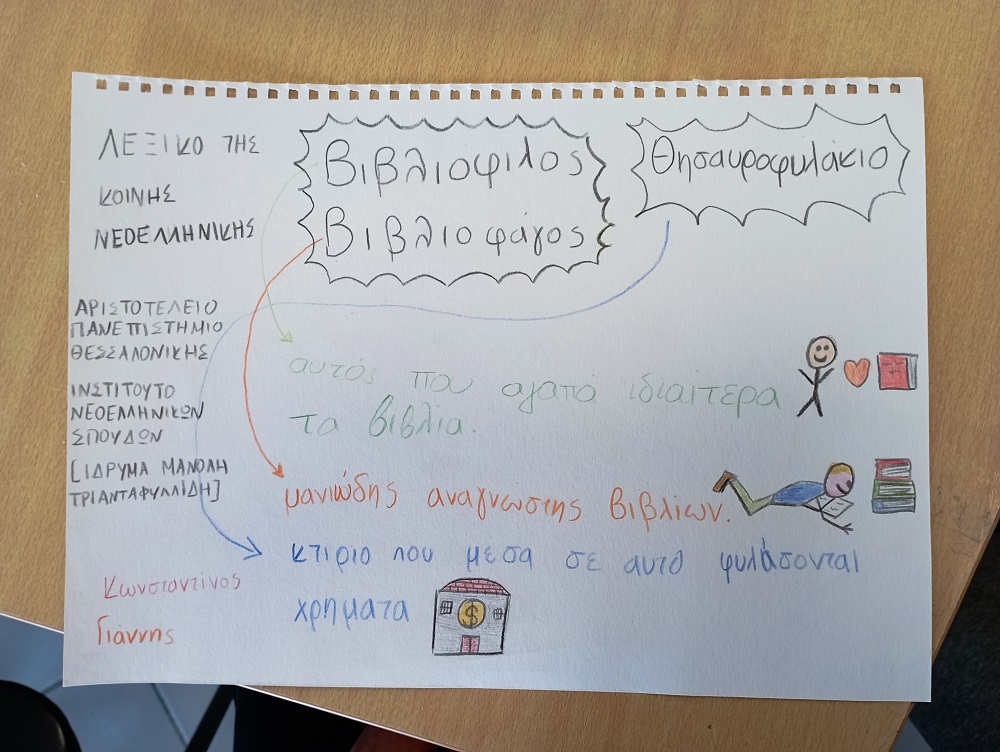 ΛΕΞΙΚΟ ΤΗΣ
ΚΟΙΝΗΣ
ΝΕΟΕΛΛΗΝΙΚΗΣ
ΑΡΙΣΤΟΤΕΛΕΙΟ
ΠΑΝΕΠΙΣΤΗΜΙΟ
ΘΕΣΣΑΛΟΝΙΚΗΣ
ΙΝΣΤΙΤΟΥΤΟ
ΝΕΟΕΛΛΗΝΙΚΩΝ
ΣΠΟΥΔΩΝ
[ΙΔΡΥΜΑ ΜΑΝΟΛΗ
ΤΡΙΑΝΤΑΦΥΛΛΙΔΗ]
Βιβλιοφιλος
Βιβλιοφάγος
Θησαυροφυλάκιο
αυτός που αγαπά ιδιαίτερα
τα βιβλία.
μανιώδης αναγνώστης βιβλίων.
κτιριο που μεσα σε αυτό φυλάσονται
χρηματα
$
Κωνσταντίνος
Γιάννης